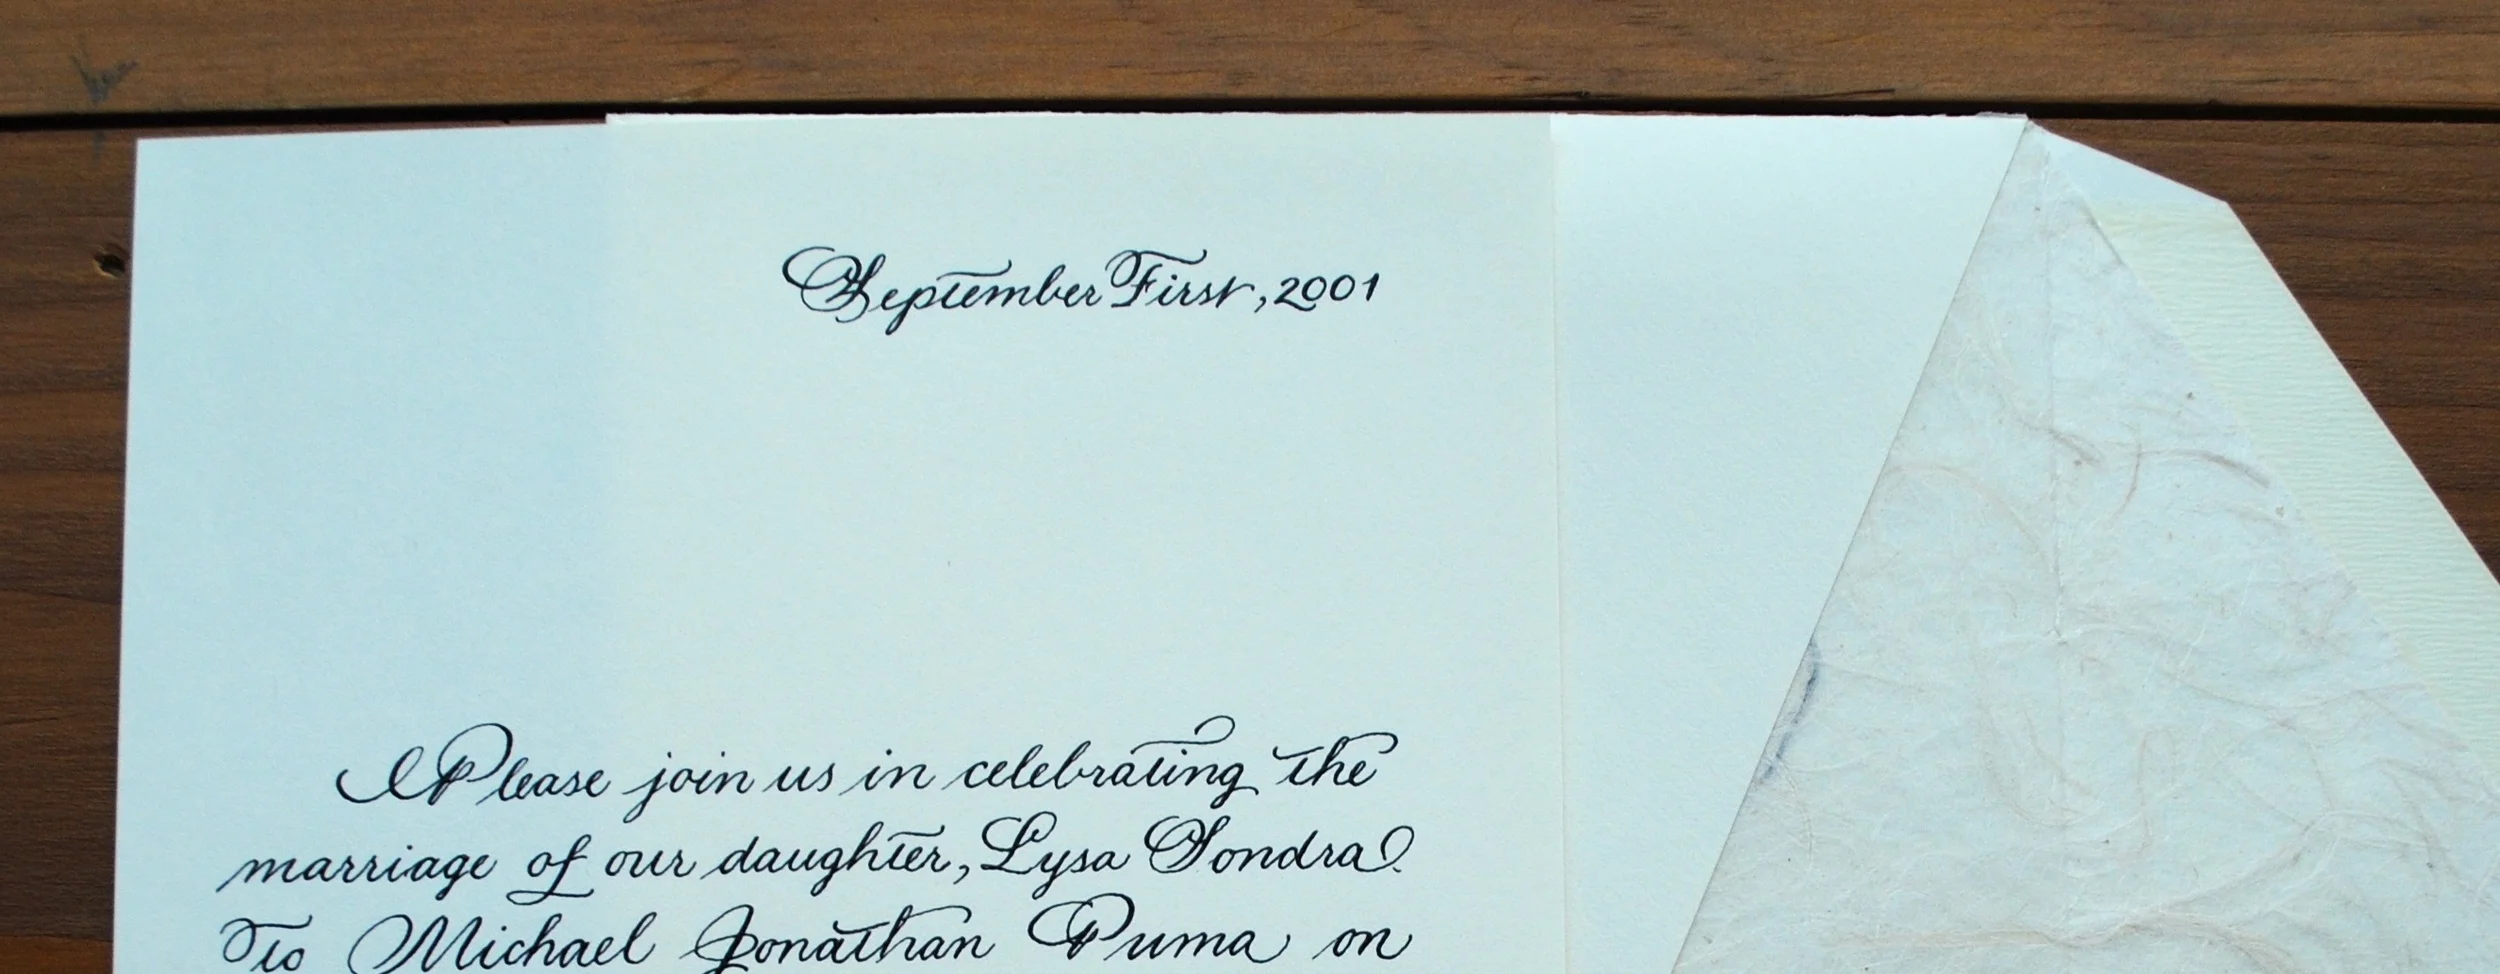 September First, 2001
Please join us in celebrating the
marriage of our daughter, Lysa Sondra
To Michael Jonathan Puma on